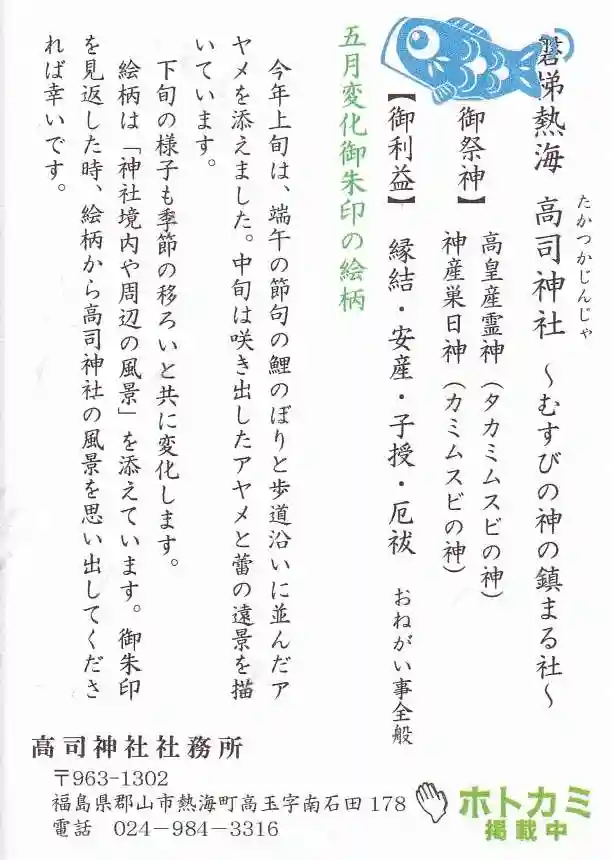 磐梯熱海 高司神社 ～むすびの神の鎮まる社～
たかつかじんじゃ
御祭神】 高皇産霊神(タカミムスビの神)
神産巣日神(カミムスビの神)
【御利益】 縁結・安産・子授・厄祓 おねがい事全般
五月変化御朱印の絵柄
今年上旬は、端午の節句の鯉のぼりと歩道沿いに並んだア
ヤメを添えました。中旬は咲き出したアヤメと蕾の遠景を描
いています。
下旬の様子も季節の移ろいと共に変化します。
絵柄は「神社境内や周辺の風景」を添えています。御朱印
を見返した時、絵柄から高司神社の風景を思い出してくださ
れば幸いです。
高司神社社務所
〒963-1302
福島県郡山市熱海町高玉字南石田178
電話 024-984-3316
ホトカミ
掲載中